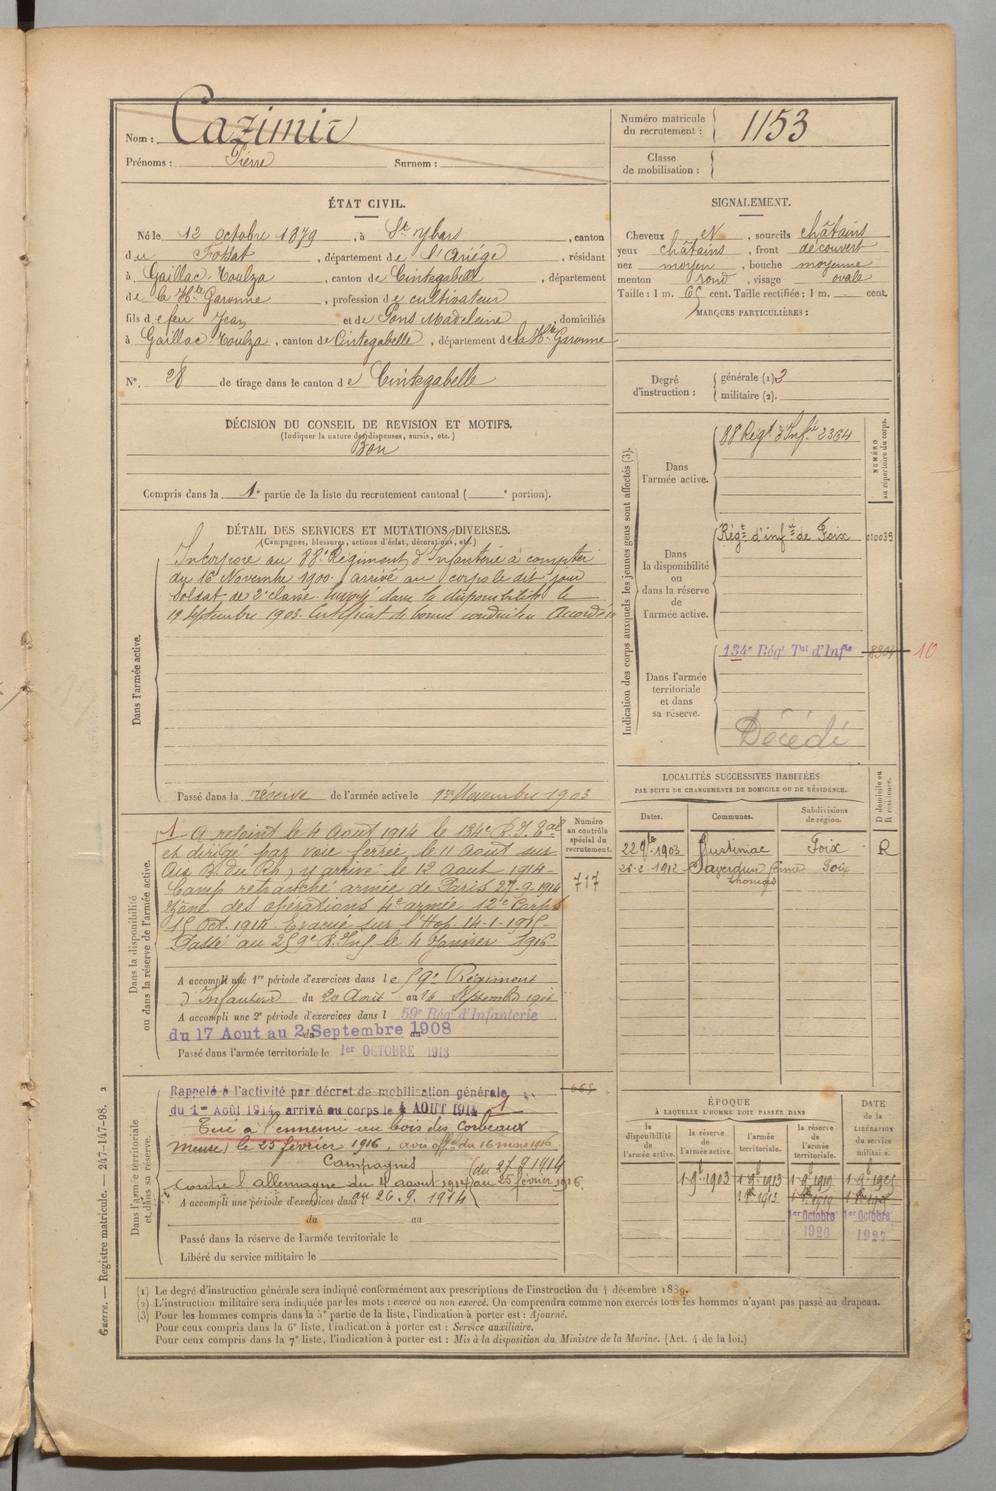 Nom : Cazimir
Prénoms : Pierre Surnom :
Numéro matricule du recrutement : 1153
Classe de mobilisation :
ÉTAT CIVIL.
Né le 12 octobre 1879, à St ybars, canton
du Fossat, département de l'Ariège, résidant
à Gaillac-Toulza, canton de Cintegabelle, département
de la Hte Garonne, profession de cultivateur
fils de feu Jean et de Pons Madeleine, domiciliés
à Gaillac-Toulza, canton de Cintegabelle, département de la Hte Garonne
N°. 28 de tirage dans le canton de Cintegabelle
SIGNALEMENT.
Cheveux et, sourcils châtains
yeux châtains, front découvert
nez moyen, bouche moyenne
menton rond, visage ovale
Taille : 1 m. 65 cent. Taille rectifiée : 1 m. cent.
MARQUES PARTICULIÈRES :
Degré d'instruction : générale (1) 2
militaire (2).
DÉCISION DU CONSEIL DE REVISION ET MOTIFS.
(Indiquer la nature des dispenses, sursis, etc.)
Bon
Compris dans la 1e partie de la liste du recrutement cantonal ( e portion).
DÉTAIL DES SERVICES ET MUTATIONS DIVERSES.
(Campagnes, blessures, actions d'éclat, décorations, etc.)
Dans l'armée active.
Incorporé au 88e Régiment d'Infanterie à compter
du 16 Novembre 1900. arrivé au corps le dit jour
Soldat de 2e classe. Envoyé dans la disponibilité le
19 Septembre 1903. Certificat de bonne conduite Accordé
Passé dans la réserve de l'armée active le 1er Novembre 1903
Indication des corps auxquels les jeunes gens sont affectés (3).
NUMÉRO au répertoire du corps.
Dans l'armée active.
88 Régt d'Infie 2304
Dans la disponibilité ou dans la réserve de l'armée active.
Régt d'infie de Foix 010035
Dans l'armée territoriale et dans sa réserve.
134e Régt Tal d'Infie 8304 10
Décédé
LOCALITÉS SUCCESSIVES HABITÉES
PAR SUITE DE CHANGEMENTS DE DOMICILE OU DE RÉSIDENCE.
Dates. Communes. Subdivisions de région. D domicile ou R résidence.
22 9bre 1903 Justiniac Foix R
25-2-1912 Saverdun ferme Thomas Foix
Dans la disponibilité ou dans la réserve de l'armée active.
Numéro au contrôle spécial du recrutement.
717
1 - A rejoint le 4 Août 1914 le 134e R.I. Tal
et dirigé par voie ferrée le 11 Août sur
Aix B. du Rh, y arrivé le 12 Août 1914 -
Camp retranché armée de Paris 27-9-1914
Zône des opérations 4e armée 12e Corps
15 Oct. 1914. Evacué sur l'Hop. 14-1-1915-
Passé au 259e R. Inf le 4 Janvier 1916
A accompli une 1re période d'exercices dans le 59e Régiment
d'Infanterie du 20 Août au 16 Septembre 1906
A accompli une 2e période d'exercices dans l 59e Rég. d'Infanterie
du 17 Aout au 2 Septembre 1908
Passé dans l'armée territoriale le 1er OCTOBRE 1913
Dans l'armée territoriale et dans sa réserve.
Rappelé à l'activité par décret de mobilisation générale
du 1er Août 1914, arrivé au corps le 4 AOUT 1914 1
Tué à l'ennemi au bois des Corbeaux
Meuse) le 25 février 1916, avis offel du 16 mars 1916
Campagnes
Contre l'allemagne du 4 aout 1914 au 26.9.1914
(du 27 9 1914 au 25 février 1916.
A accompli une période d'exercices dans
du au
Passé dans la réserve de l'armée territoriale le
Libéré du service militaire le
ÉPOQUE
À LAQUELLE L'HOMME DOIT PASSER DANS
la disponibilité de l'armée active. la réserve de l'armée active. l'armée territoriale. la réserve de l'armée territoriale.
DATE de la LIBÉRATION du service militaire.
1 9bre 1903 1 9bre 1913 1 9bre 1919
1 8bre 1913 1 8bre 1919
1er Octobre 1920 1er Octobre 1927
Guerre. — Registre matricule. — 247-147-98. 2
(1) Le degré d'instruction générale sera indiqué conformément aux prescriptions de l'instruction du 4 décembre 1889.
(2) L'instruction militaire sera indiquée par les mots : exercé ou non exercé. On comprendra comme non exercés tous les hommes n'ayant pas passé au drapeau.
(3) Pour les hommes compris dans la 5e partie de la liste, l'indication à porter est : Ajourné.
Pour ceux compris dans la 6e liste, l'indication à porter est : Service auxiliaire.
Pour ceux compris dans la 7e liste, l'indication à porter est : Mis à la disposition du Ministre de la Marine. (Art. 4 de la loi.)